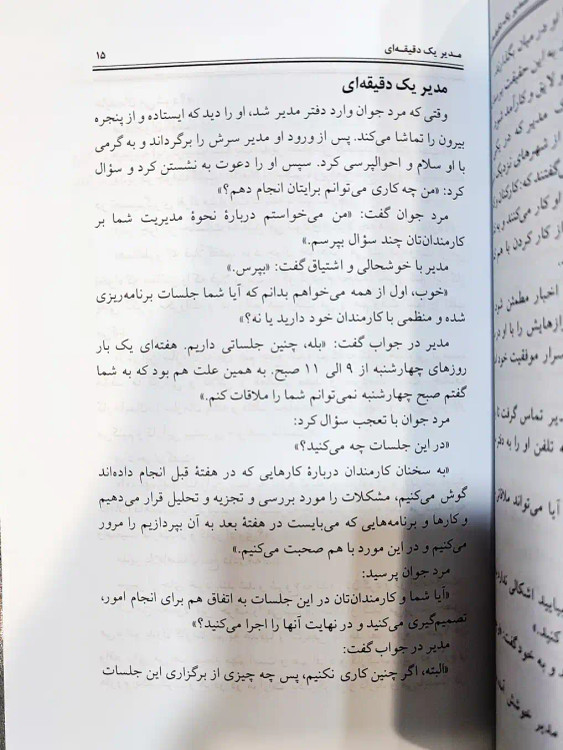 مدیر یک دقیقه‌ای ۱۵
مدیر یک دقیقه‌ای
وقتی که مرد جوان وارد دفتر مدیر شد، او را دید که ایستاده و از پنجره
بیرون را تماشا می‌کند. پس از ورود او مدیر سرش را برگرداند و به گرمی
با او سلام و احوالپرسی کرد. سپس او را دعوت به نشستن کرد و سؤال
کرد: «من چه کاری می‌توانم برایتان انجام دهم؟»
مرد جوان گفت: «من می‌خواستم دربارهٔ نحوهٔ مدیریت شما بر
کارمندان‌تان چند سؤال بپرسم.»
مدیر با خوشحالی و اشتیاق گفت: «بپرس.»
«خوب، اول از همه می‌خواهم بدانم که آیا شما جلسات برنامه‌ریزی
شده و منظمی با کارمندان خود دارید یا نه؟»
مدیر در جواب گفت: «بله، چنین جلساتی داریم. هفته‌ای یک بار
روزهای چهارشنبه از ۹ الی ۱۱ صبح. به همین علت هم بود که به شما
گفتم صبح چهارشنبه نمی‌توانم شما را ملاقات کنم.»
مرد جوان با تعجب سؤال کرد:
«در این جلسات چه می‌کنید؟»
«به سخنان کارمندان دربارهٔ کارهایی که در هفتهٔ قبل انجام داده‌اند
گوش می‌کنیم، مشکلات را مورد بررسی و تجزیه و تحلیل قرار می‌دهیم
و کارها و برنامه‌هایی که می‌بایست در هفتهٔ بعد به آن بپردازیم را مرور
می‌کنیم و در این مورد با هم صحبت می‌کنیم.»
مرد جوان پرسید:
«آیا شما و کارمندان‌تان در این جلسات به اتفاق هم برای انجام امور،
تصمیم‌گیری می‌کنید و در نهایت آنها را اجرا می‌کنید؟»
مدیر در جواب گفت:
«البته، اگر چنین کاری نکنیم، پس چه چیزی از برگزاری این جلسات
مدیر که در یکی
از شهرهای نزدیک
او کار می‌کنند و به
از کار کردن با هم
اخبار مطمئن شود
رازهایش را با او در
سرار موفقیت خود
تماس گرفت تا
تلفن او را به دفتر
آیا می‌تواند ملاقات
بیایید. اشکالی ندارد
کنید.»
و به خود گفت:
مدیر خوشش